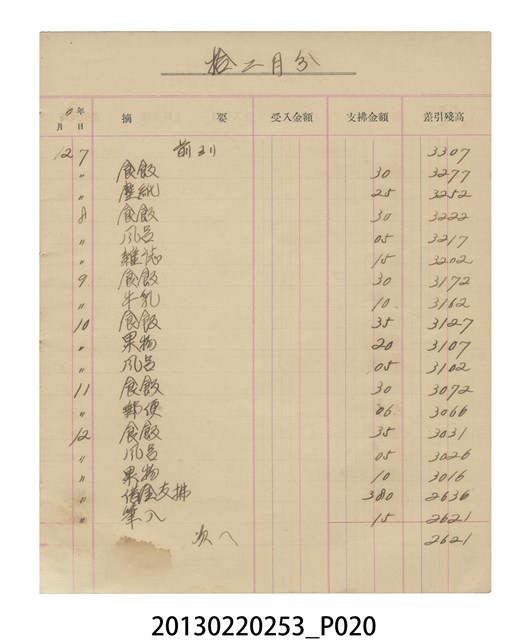 拾二月分
年 月 日 摘要 受入金額 支拂金額 差引殘高
12 7 前ヨリ 3307
〃 食飯 30 3277
〃 塵紙 25 3252
8 食飯 30 3222
〃 風呂 05 3217
〃 雜誌 15 3202
9 食飯 30 3172
〃 牛乳 10 3162
10 食飯 35 3127
〃 果物 20 3107
〃 風呂 05 3102
11 食飯 30 3072
〃 郵便 06 3066
12 食飯 35 3031
〃 風呂 05 3026
〃 果物 10 3016
〃 借金支拂 380 2636
〃 筆入 15 2621
次へ 2621
20130220253_P020